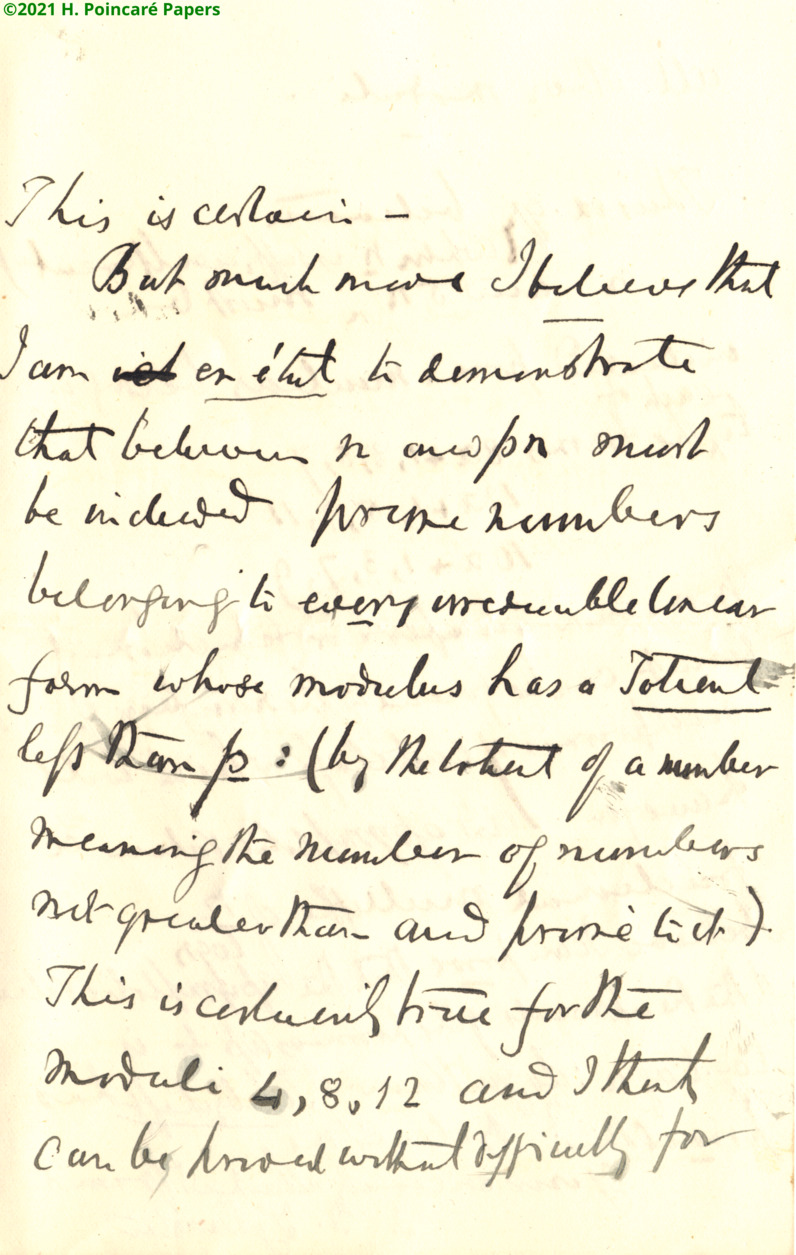 ©2021 H. Poincaré Papers
This is certain –
But much more I believe that
I am en état to demonstrate
that between n and pn must
be included prime numbers
belonging to every irreducible linear
form whose modulus has a Totient
less than p : (by the totient of a number
meaning the number of numbers
not greater than and prime to it)
This is certainly true for the
moduli 4, 8, 12 and I think
can be proved without difficulty for